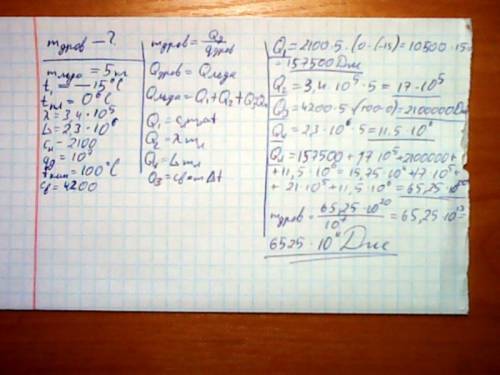 mдров – ?
mльда = 5 кг
t₁ = –15°C
tпл = 0°C
λ = 3,4·10⁵
L = 2,3·10⁶
cл = 2100
tкип = 100°C
cв = 4200
mдров = Qд/qдров
Qдров = Qльда
Qльда = Q₁ + Q₂ + Q₃
Q₁ = cлm∆t
Q₂ = λm
Q₄ = Lm
Q₃ = cвm∆t
Q₁ = 2100·5·(0-(-15)) = 10500·15 =
= 157500 Дж
Q₂ = 3,4·10⁵·5 = 17·10⁵
Q₃ = 4200·5·(100-0) = 2100000 Дж
Q₄ = 2,3·10⁶·5 = 11,5·10⁶
= 157500 + 17·10⁵ + 2100000 +
+ 11,5·10⁶ = 15,25·10⁵ + 17·10⁵ +
+ 21·10⁵ + 11,5·10⁶ = 65,25·10²⁰
mдров = 65,25·10²⁰/10⁷ = 65,25·10¹³ =
Дж